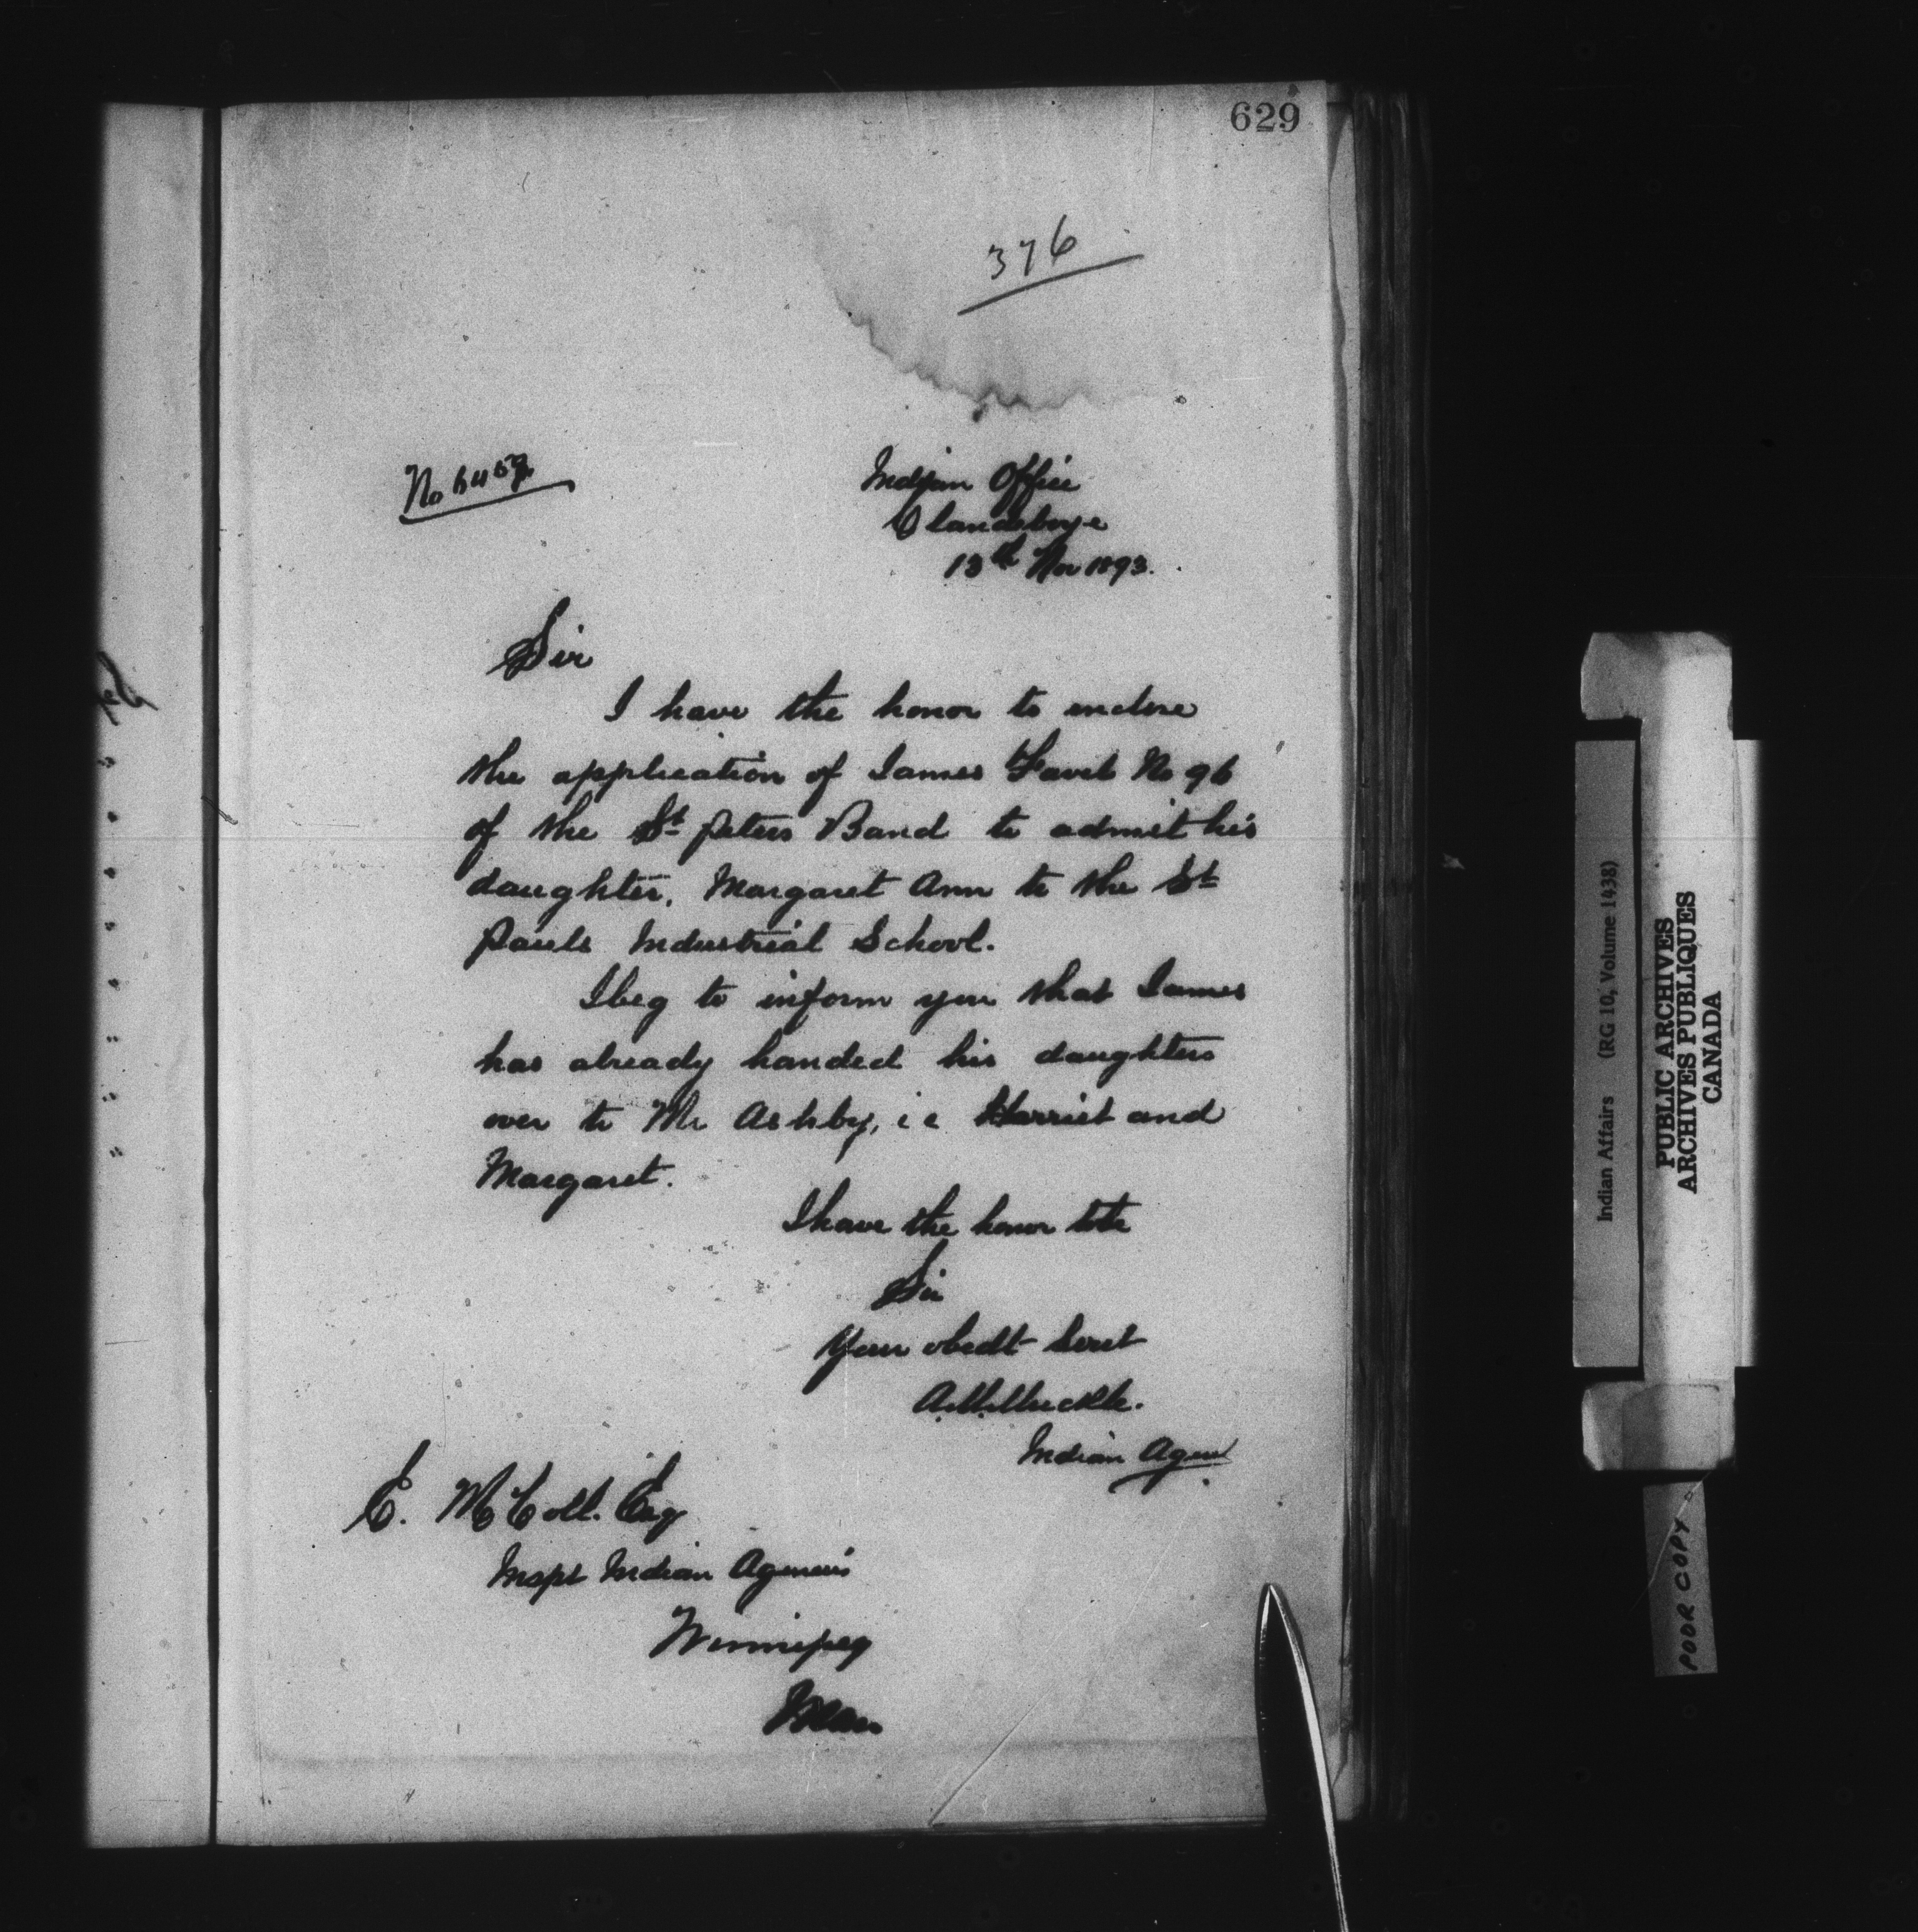 629
376
No
Indian Office
Clandeboye
13th Nov 1893.
Sir
I have the honor to enclose
the application of James Favel No 96
of the St Peters Band to admit his
daughter, Margaret Ann to the St
Pauls Industrial School.
I beg to inform you that James
has already handed his daughters
over to Mr Ashby, i e Harriet and
Margaret.
I have the honor to be
Sir
Your obedt Servt
A. M. Muckle.
Indian Agent
E. McColl. Esq
Inspt Indian Agencies
Winnipeg
Man
Indian Affairs (RG 10, Volume 1438)
PUBLIC ARCHIVES
ARCHIVES PUBLIQUES
CANADA
POOR COPY